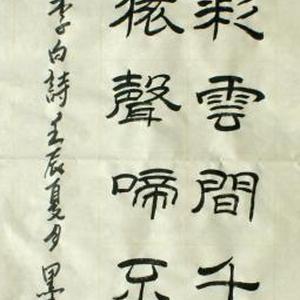 彩雲間千
猿聲啼不
李白詩壬辰夏月墨